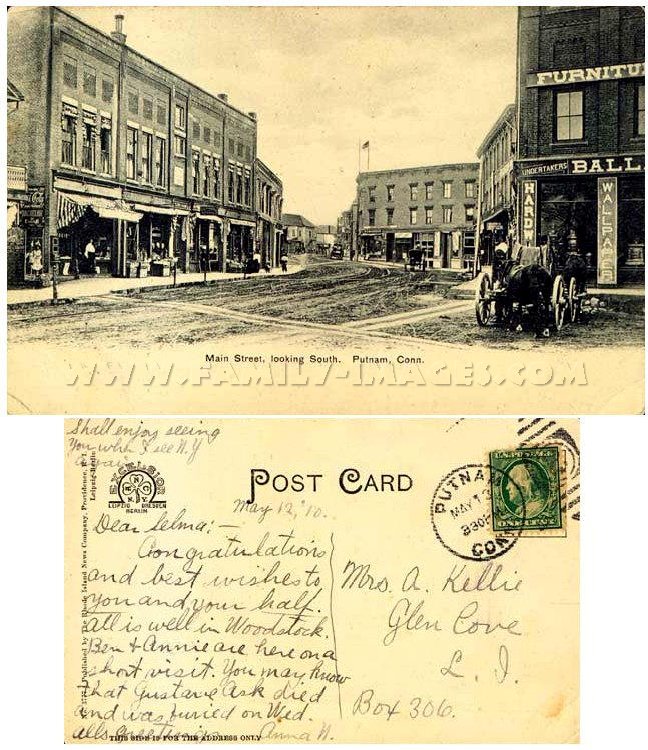 FURNITU
UNDERTAKERS BALL
HARD
WALLPAPER
Main Street, looking South. Putnam, Conn.
WWW.FAMILY-IMAGES.COM
Shall enjoy seeing
you when I see N.Y
again
EXCELSIOR
LEIPZIG DRESDEN
BERLIN
Published by The Rhode Island News Company, Providence, R. I.
Leipzig-Berlin
POST CARD
May 12, '10.
PUTNAM
MAY 13
830P
CONN
Dear Selma:-
Congratulations
and best wishes to
you and your half.
All is well in Woodstock.
Ben & Annie are here on a
short visit. You may know
that Gustave Ask died
and was buried on Wed.
Anna N.
THIS SIDE IS FOR THE ADDRESS ONLY
Mrs. A. Kellie
Glen Cove
L. I.
Box 306.